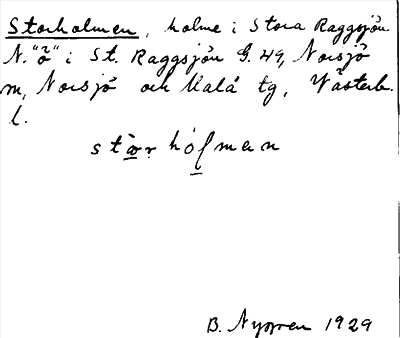 Storholmen, holme i Stora Raggsjön
N. "ö" i St. Raggsjön G. 49, Norsjö
m, Norsjö och Malå tg, Västerb.
l.
stor holman
B. Nygren 1929